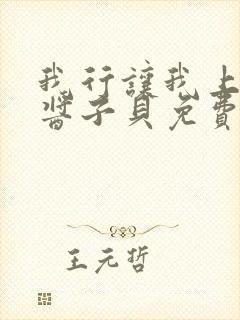 我行讓我上
醬子貝免費
王元哲